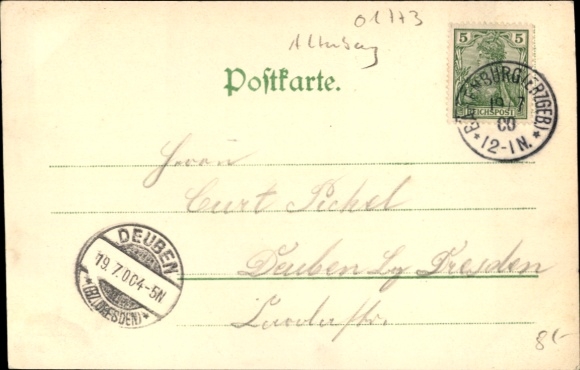 01773
Altenberg
Postkarte.
5 5
REICHSPOST
ALTENBURG (ERZGEB.)
19 7
00
* 12-1N. *
Herrn
Curt Pichel
Deuben Bz Dresden
DEUBEN
19.7.00 4-5N
*(BZ. DRESDEN)*
8,-